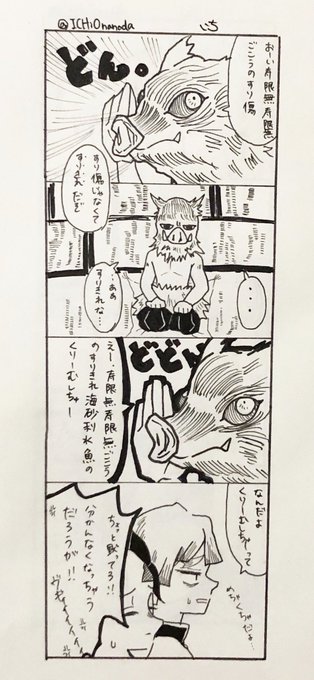 @ICHiOnanoda
いち
おーい寿限無寿限無って
ごこうのすり傷
どん。
すり傷じゃなくて
すりきれだぞ
・・・
ああ
すりきれな…
どどん
えー、寿限無寿限無ごこう
のすりきれ海砂利水魚の
くりーむしちゅー
なんだよ
くりーむしちゅーって
めちゃくちゃだよ…
ちょっと黙ってろ!!
分かんなくなっちゃう
だろうが!!